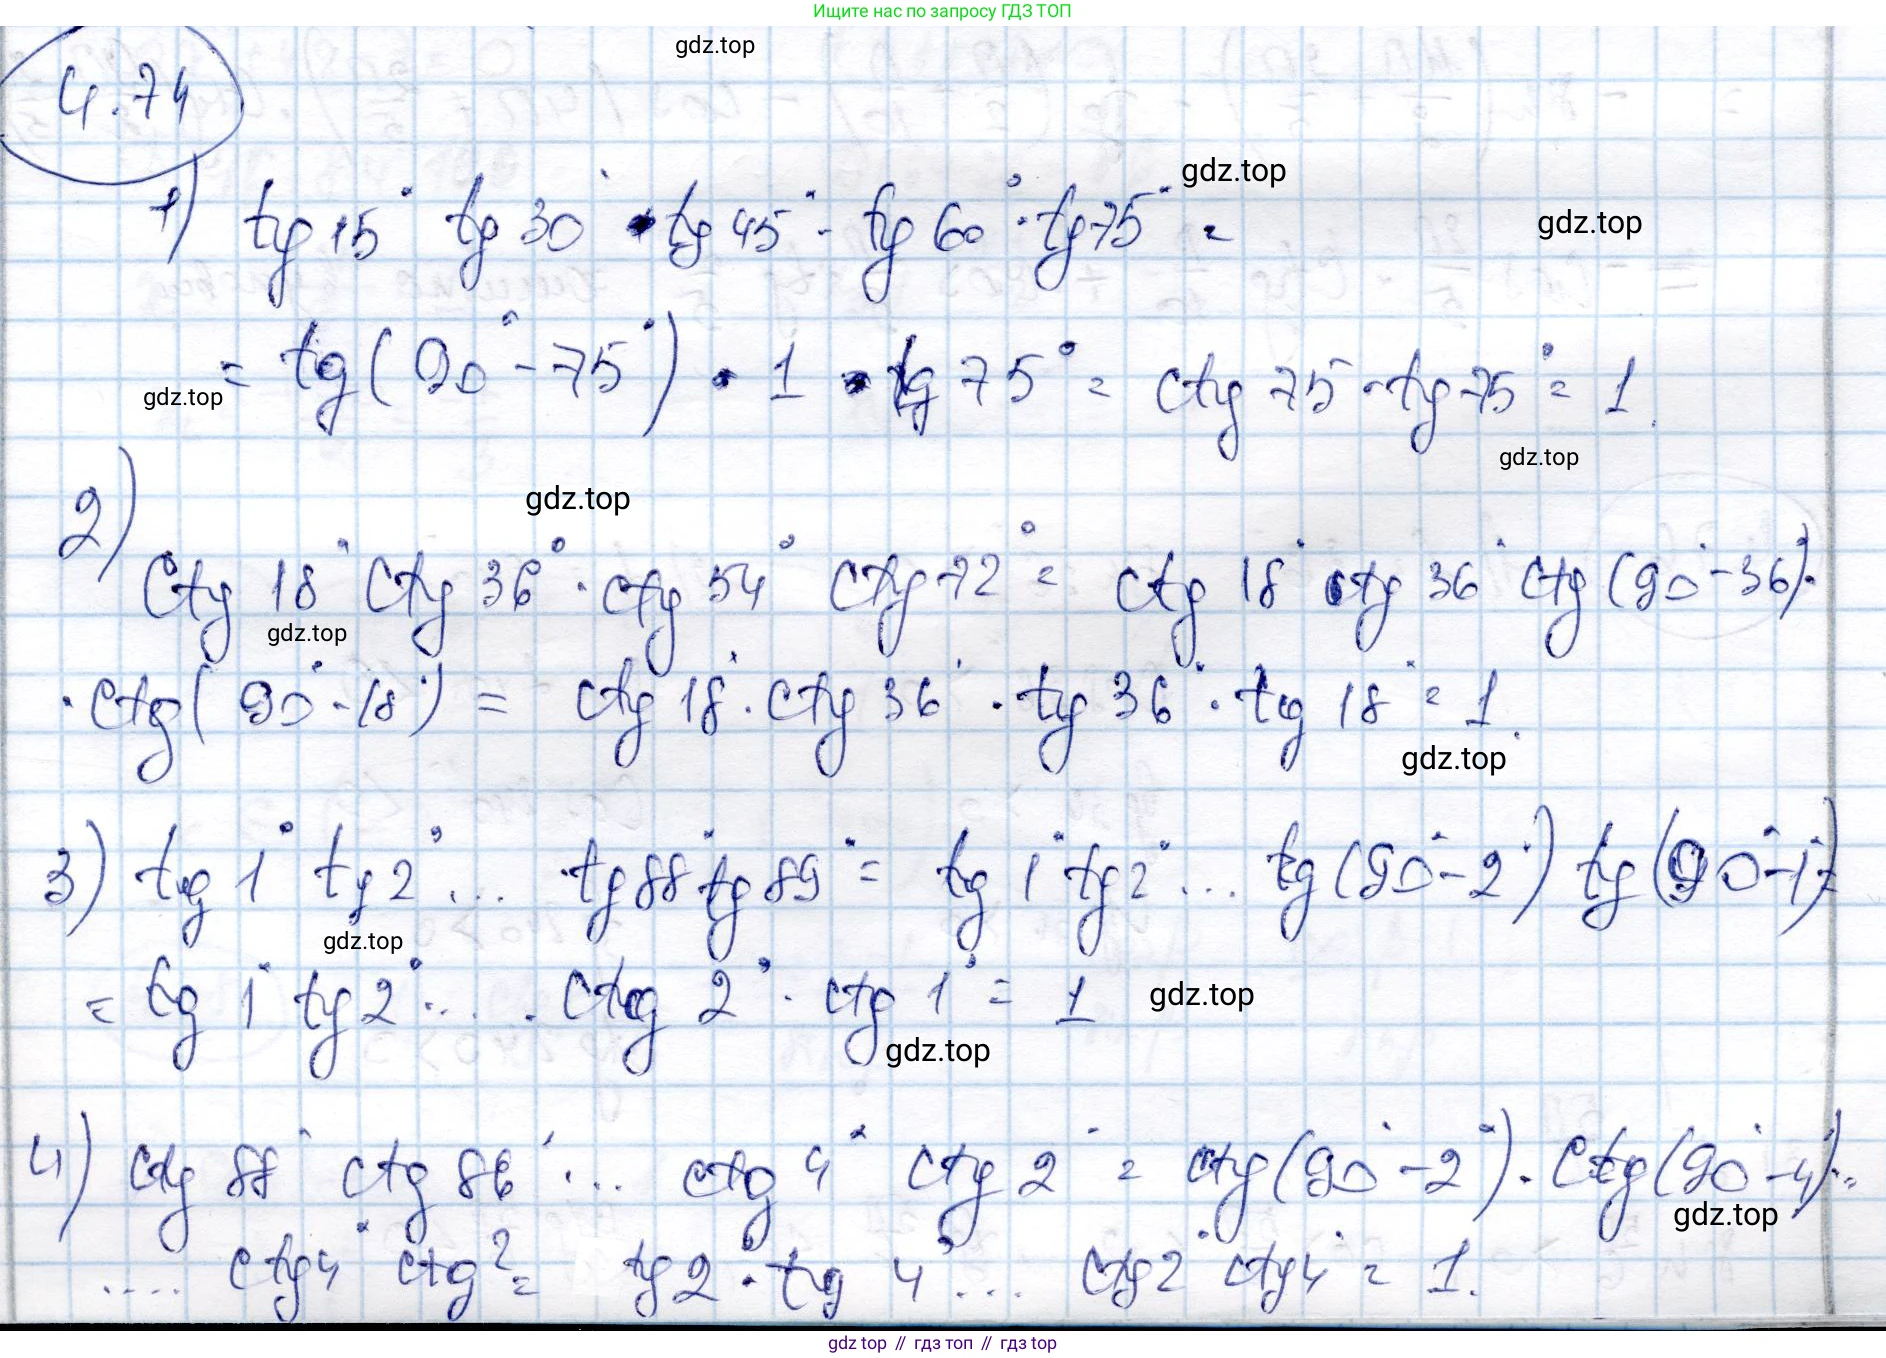 Ищите нас по запросу ГДЗ ТОП
gdz.top
4.74
gdz.top
1) tg 15° tg 30° · tg 45° · tg 60° · tg 75° =
gdz.top
= tg(90° - 75°) · 1 · tg 75° = ctg 75° · tg 75° = 1.
gdz.top
gdz.top
2)
gdz.top
ctg 18° ctg 36° · ctg 54° ctg 72° = ctg 18° ctg 36° ctg (90° - 36°) ·
gdz.top
· ctg(90° - 18°) = ctg 18° · ctg 36° · tg 36° · tg 18° = 1.
gdz.top
3) tg 1° tg 2° ... · tg 88° tg 89° = tg 1° tg 2° ... tg(90° - 2°) tg(90° - 1°) =
gdz.top
= tg 1° tg 2° ... · ctg 2° · ctg 1° = 1
gdz.top
gdz.top
4) ctg 88° ctg 86° · ... ctg 4° ctg 2° = ctg(90° - 2°) · ctg(90° - 4°) ·
gdz.top
.... ctg 4° ctg 2 = tg 2° · tg 4° ... ctg 2° ctg 4° = 1.
gdz top // гдз топ // гдз top